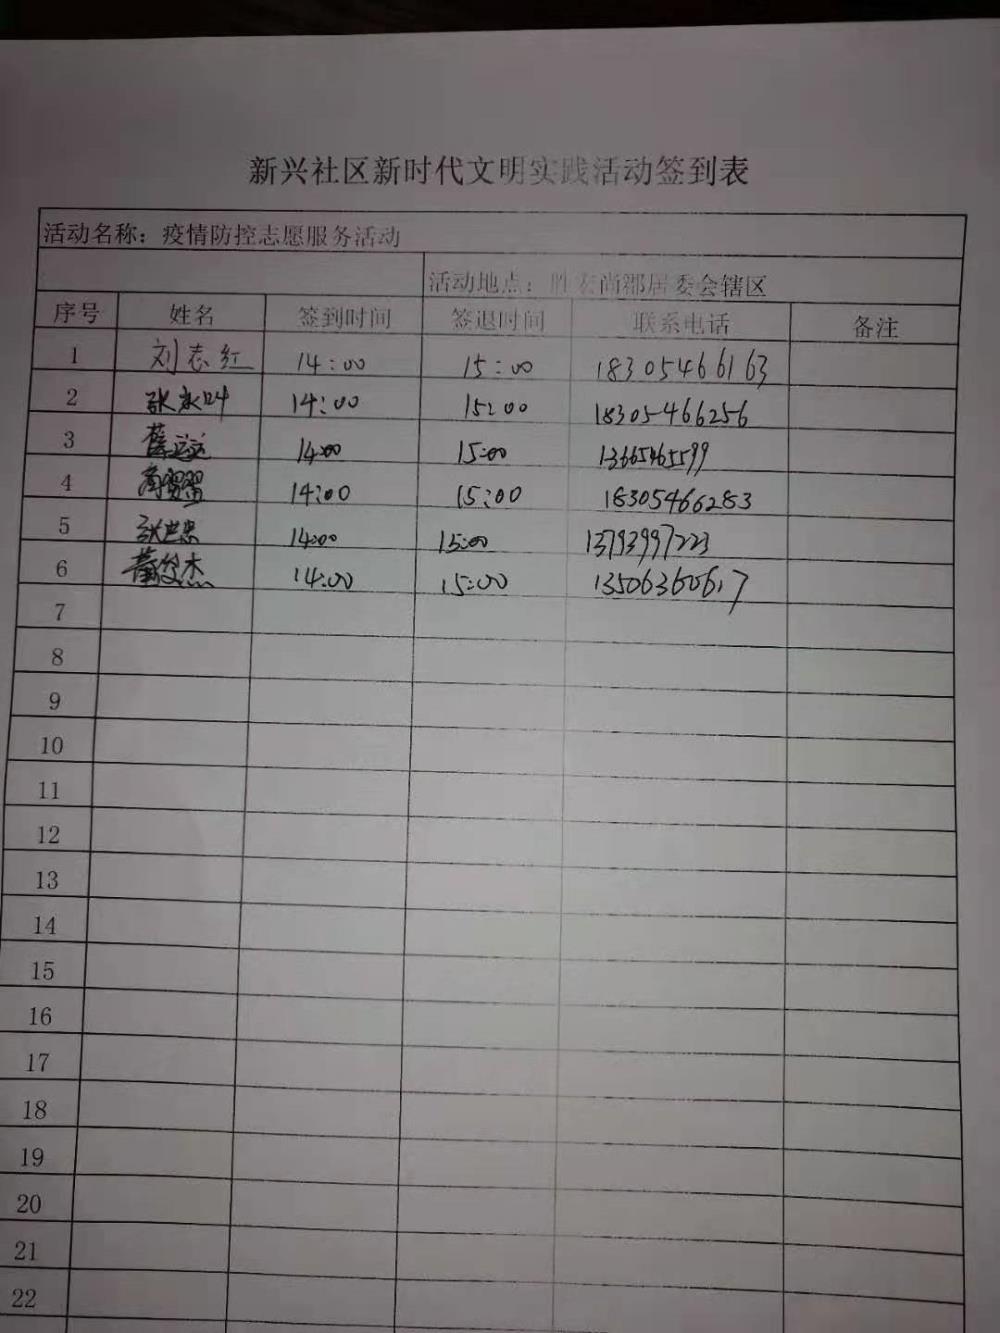 新兴社区新时代文明实践活动签到表
活动名称：疫情防控志愿服务活动
活动地点：胜宏尚郡居委会辖区
序号 姓名 签到时间 签退时间 联系电话 备注
1 刘志红 14:00 15:00 18305466163
2 张 14:00 15:00 18305466256
3 薛 14:00 15:00 13665465599
4 14:00 15:00 18305466283
5 张 14:00 15:00 13793997223
6 董俊杰 14:00 15:00 13506360617
7
8
9
10
11
12
13
14
15
16
17
18
19
20
21
22